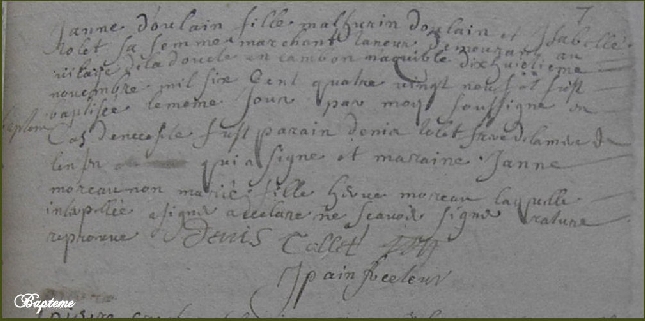 7
Janne doulain fille mathurin doulain et Isabelle
Colet sa femme marchant taneur demourants au
village de la en cambon naquit le dixhuitieme
novembre mil six cent quatre vingt neuf et fust
baptisée le meme jour par moy soussigné en
cas de necesité fust parain denis Colet frere de la mere de
lenfen qui a signé et maraine Janne
moreau non mariée fille herve moreau laquelle
intepellée a signé a declare ne scavoir signe rature
reprouvé Denis Collet
Jpain Recteur
Bapteme